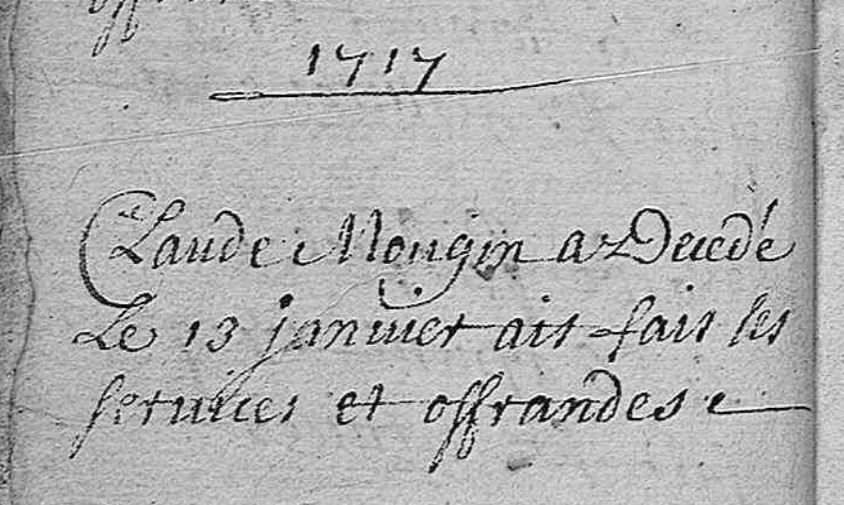 1717
Claude Mougin a Decedé
Le 13 januier ait fait les
seruices et offrandes